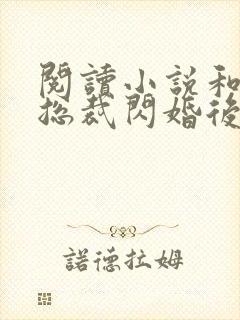 閱讀小說和
總裁閃婚後
諾德拉姆